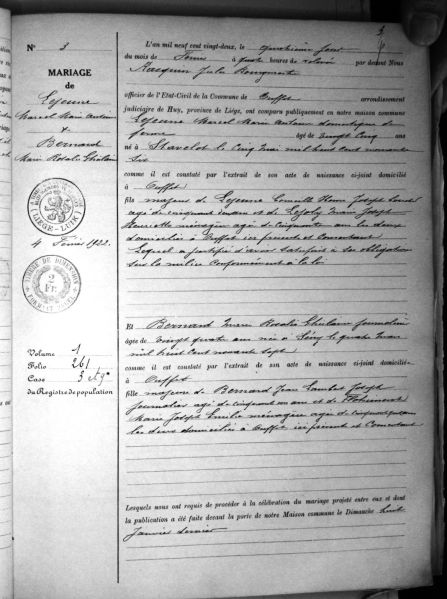 3
N° 3
MARIAGE
de
Lejeune
Marcel Marie Antoine
&
Bernard
Marie Rosalie Ghislaine
LIÉGE-LUIK
4 Février 1922.
TIMBRE DE DIMENSION
2
Fr
Volume 1
Folio 261
Case 3
du Registre de population
L'an mil neuf cent vingt-deux, le quatrième jour
du mois de Février à quatre heures de relevée par devant Nous
Rasquin Jules
officier de l'Etat-Civil de la Commune de Ouffet arrondissement
judiciaire de Huy, province de Liége, ont comparu publiquement en notre maison commune
Lejeune Marcel Marie Antoine domestique de
ferme âgé de vingt cinq ans
né à Stavelot le cinq Mai mil huit cent nonante
six
comme il est constaté par l'extrait de son acte de naissance ci-joint domicilié
à Ouffet
fils majeur de Lejeune Henri Joseph
âgé de cinquante ans et de Marie Joseph
Henriette ménagère âgée de cinquante ans les deux
domiciliés à Ouffet ici présents et consentant
Lequel a justifié d'avoir satisfait à ses obligations
sur la milice conformément à la loi
Et Bernard Marie Rosalie Ghislaine journalière
âgée de vingt quatre ans née à le quatre Mai
mil huit cent nonante sept
comme il est constaté par l'extrait de son acte de naissance ci-joint domicilié
à Ouffet
fille majeure de Bernard Jean Lambert Joseph
journalier âgé de cinquant ans et de
Marie Joseph Emilie ménagère âgée de ans
les deux domiciliés à Ouffet ici présents et consentant
Lesquels nous ont requis de procéder à la célébration du mariage projeté entre eux et dont
la publication a été faite devant la porte de notre Maison commune le Dimanche huit
Janvier dernier